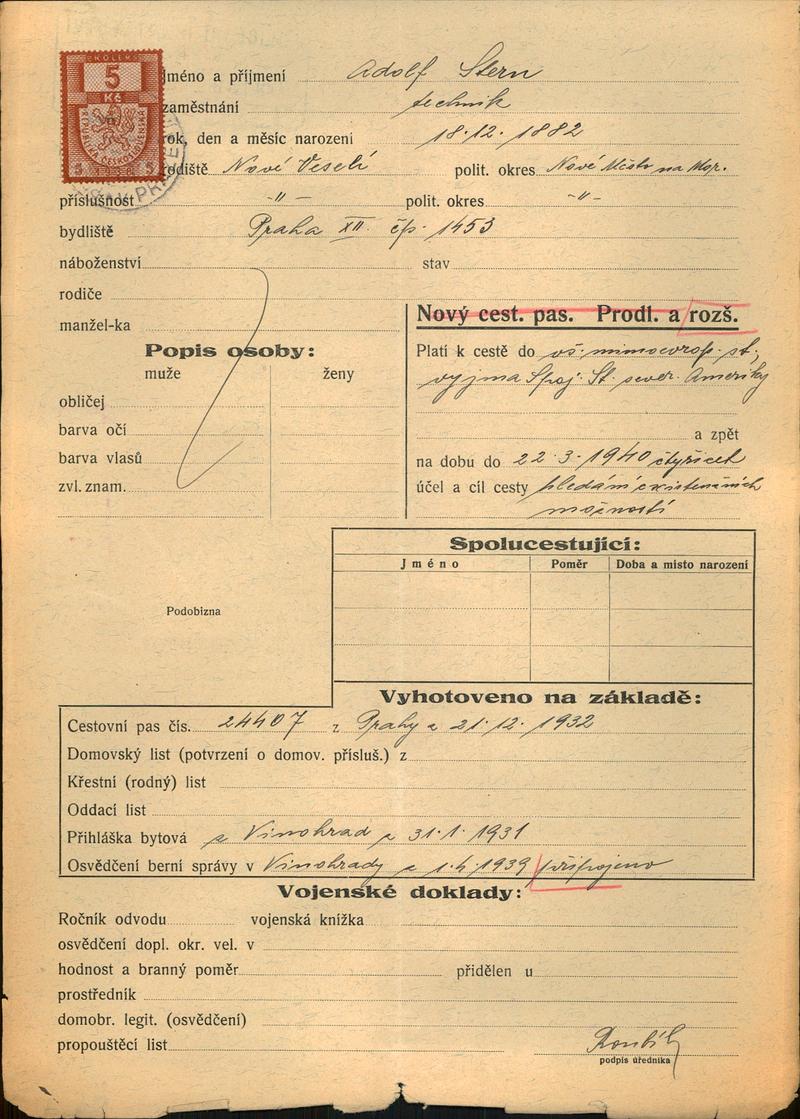 KOLEK
5
Kč
REPUBLIKA ČESKOSLOVENSKÁ
jméno a příjmení Adolf Stern
zaměstnání technik
rok, den a měsíc narození 18.12.1882
rodiště Nové Veselí polit. okres Nové Město na Mor.
příslušnost -"- polit. okres -"-
bydliště Praha XII. čp. 1453
náboženství stav
rodiče
manžel-ka
Nový cest. pas. Prodl. a rozš.
Popis osoby:
muže ženy
obličej
barva očí
barva vlasů
zvl. znam.
Platí k cestě do vš. mimoevrop. st.,
vyjma Spoj. St. sever. Ameriky
a zpět
na dobu do 22.3.1940 čtyřicet
účel a cíl cesty hledání existenčních
možností
Podobizna
Spolucestující:
Jméno Poměr Doba a místo narození
Vyhotoveno na základě:
Cestovní pas čís. 24407 z Prahy z 21.12.1932
Domovský list (potvrzení o domov. přísluš.) z
Křestní (rodný) list
Oddací list
Přihláška bytová z Vinohrad z 31.1.1931
Osvědčení berní správy v Vinohrady z 1.4.1939 připojeno
Vojenské doklady:
Ročník odvodu vojenská knížka
osvědčení dopl. okr. vel. v
hodnost a branný poměr přidělen u
prostředník
domobr. legit. (osvědčení)
propouštěcí list
podpis úředníka